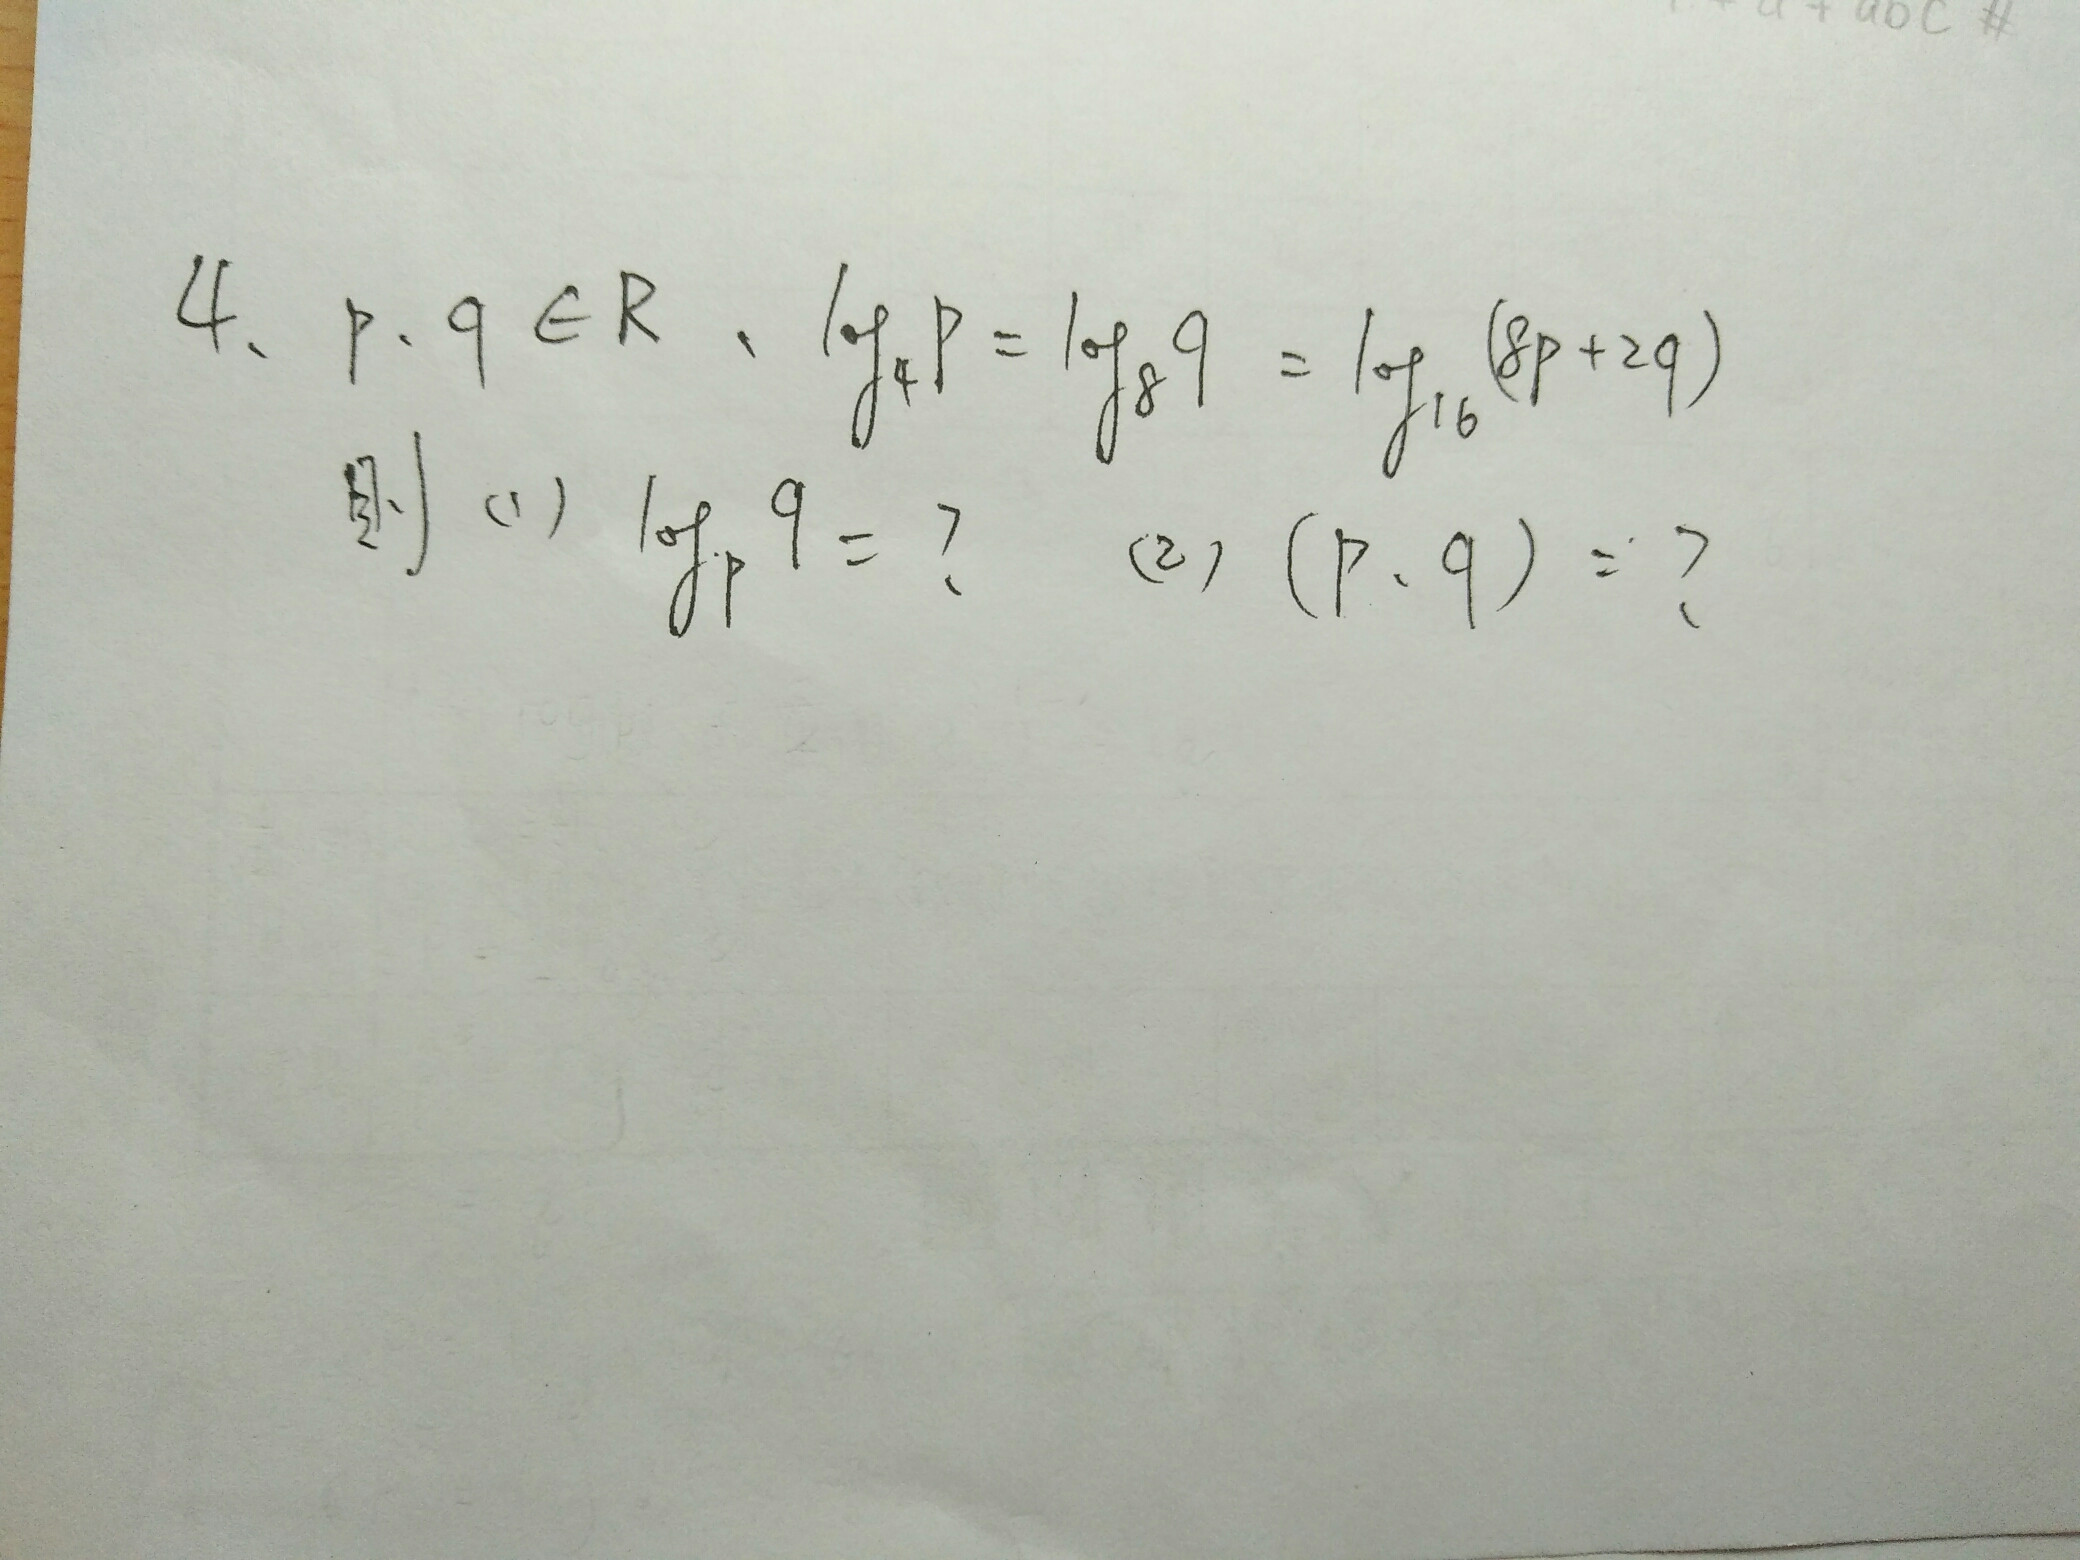 + abc #
4、p、q ∈ R、log₄ p = log₈ q = log₁₆ (8p+2q)
則 (1) logₚ q = ? (2) (p、q) = ?